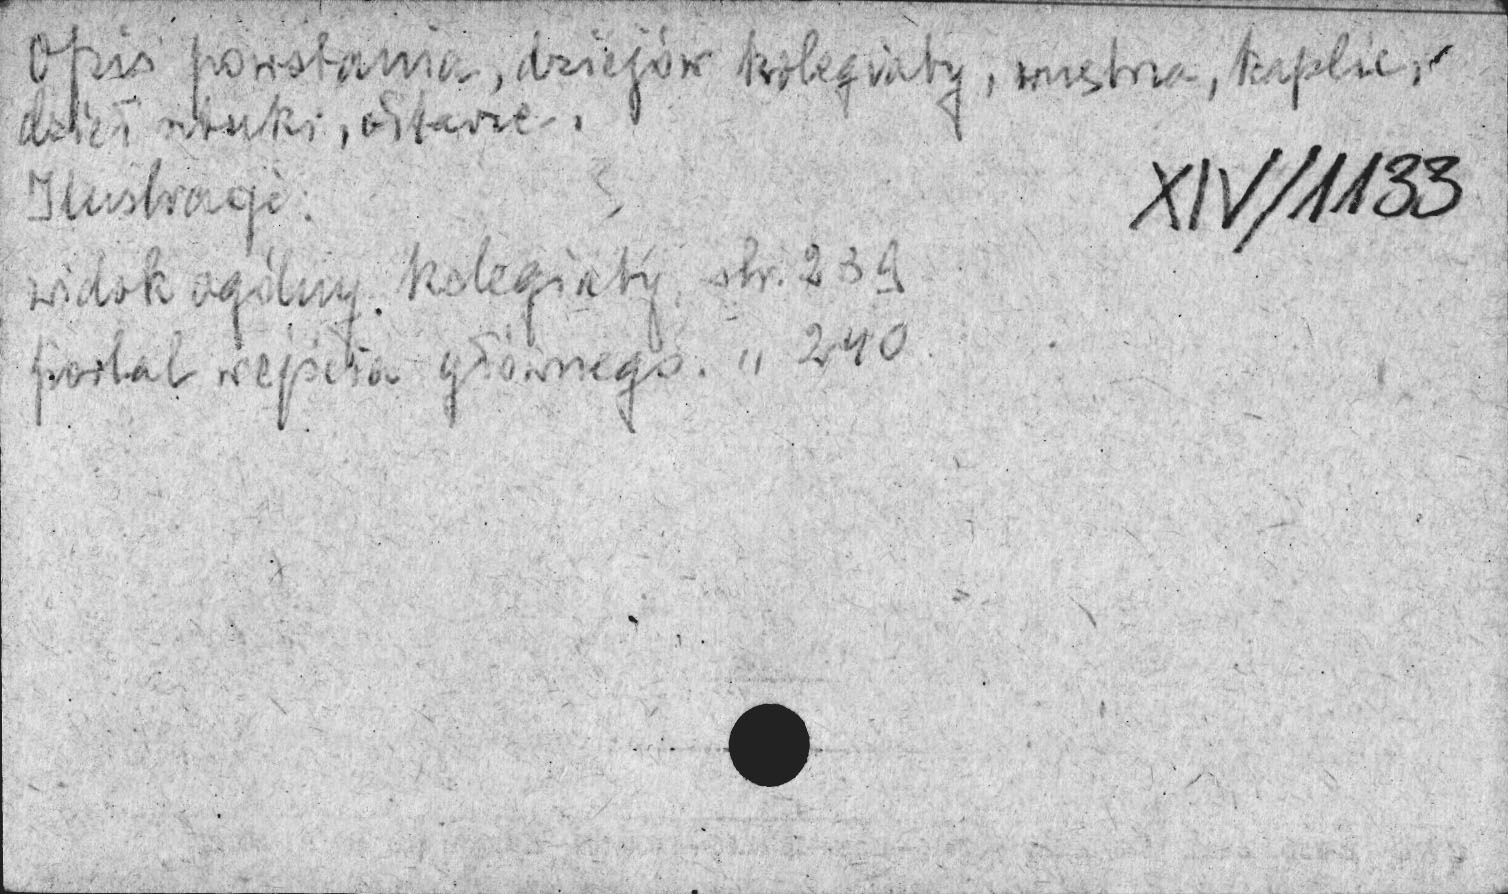 Opis powstania, dziejów kolegiaty, wnętrza, kaplic,
dzieł sztuki, ołtarze.
Ilustracje:
XIV/1133
widok ogólny kolegiaty, str. 239
portal wejścia głównego. " 240